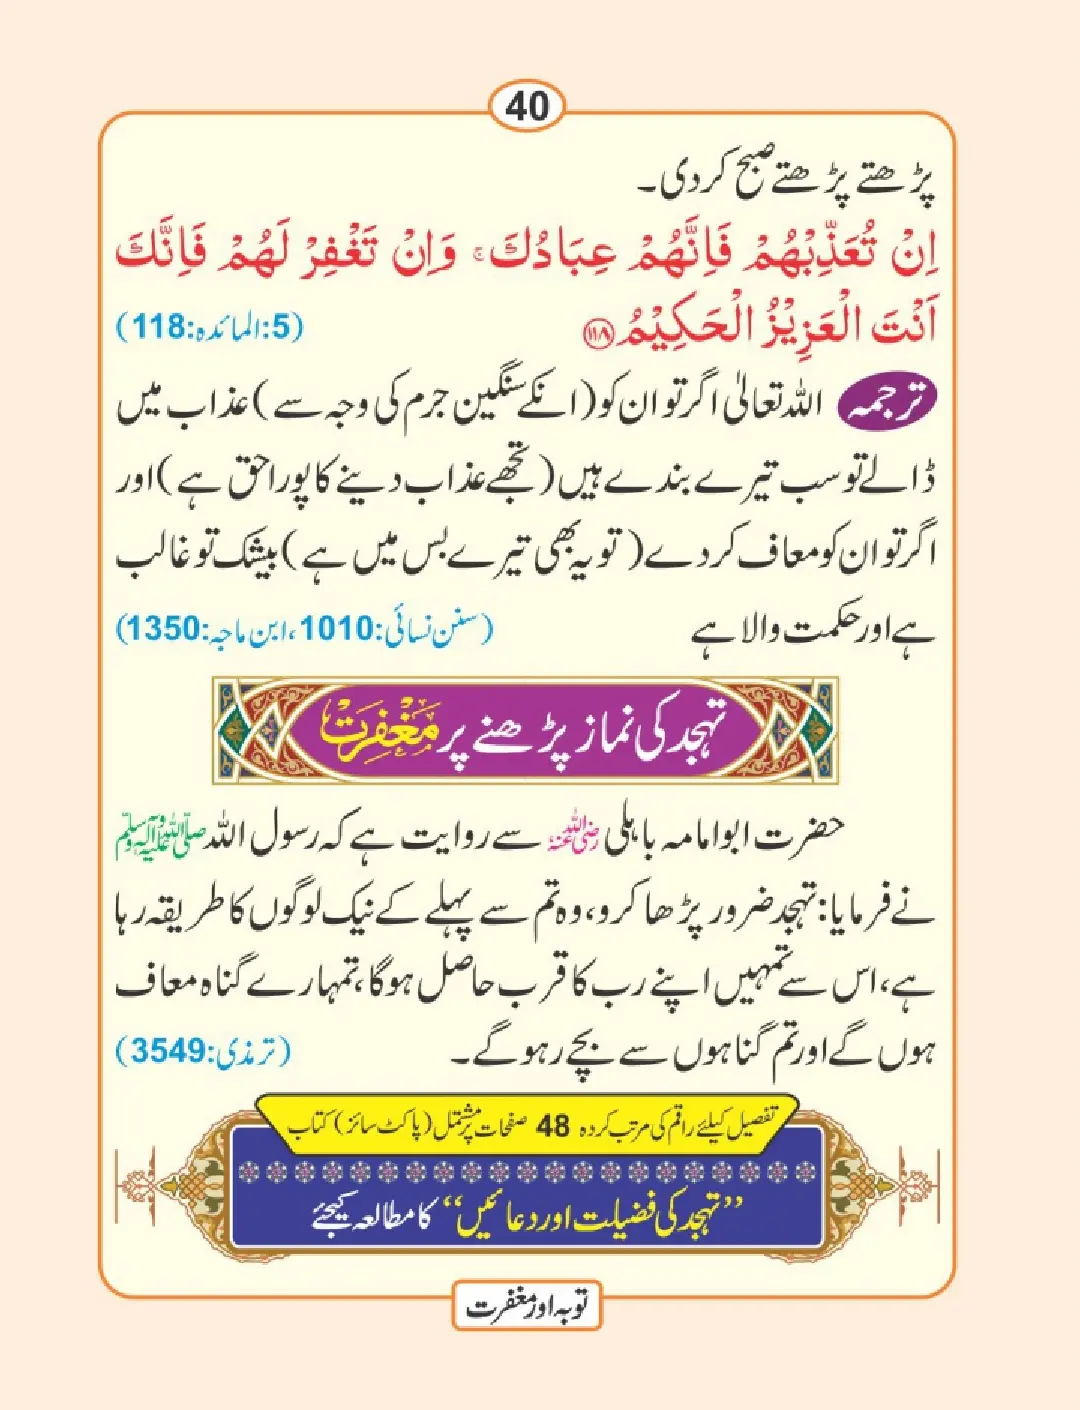 40
پڑھتے پڑھتے صبح کر دی۔
اِنْ تُعَذِّبْهُمْ فَاِنَّهُمْ عِبَادُكَ ۚ وَاِنْ تَغْفِرْ لَهُمْ فَاِنَّكَ
اَنْتَ الْعَزِيْزُ الْحَكِيْمُ ۝۱۱۸ (5:المائدہ:118)
ترجمہ اللہ تعالیٰ اگر تو ان کو (انکے سنگین جرم کی وجہ سے) عذاب میں
ڈالے تو سب تیرے بندے ہیں (تجھے عذاب دینے کا پورا حق ہے) اور
اگر تو ان کو معاف کر دے (تو یہ بھی تیرے بس میں ہے) بیشک تو غالب
ہے اور حکمت والا ہے (سنن نسائی:1010، ابن ماجہ:1350)
تہجد کی نماز پڑھنے پر مَغْفِرَتْ
حضرت ابوامامہ باہلی رضی اللہ عنہ سے روایت ہے کہ رسول اللہ صلی اللہ علیہ وآلہ وسلم
نے فرمایا: تہجد ضرور پڑھا کرو، وہ تم سے پہلے کے نیک لوگوں کا طریقہ رہا
ہے، اس سے تمہیں اپنے رب کا قرب حاصل ہوگا، تمہارے گناہ معاف
ہوں گے اور تم گناہوں سے بچے رہو گے۔ (ترمذی:3549)
تفصیل کیلئے راقم کی مرتب کردہ 48 صفحات پر مشتمل (پاکٹ سائز) کتاب
”تہجد کی فضیلت اور دعائیں“ کا مطالعہ کیجئے
توبہ اور مغفرت